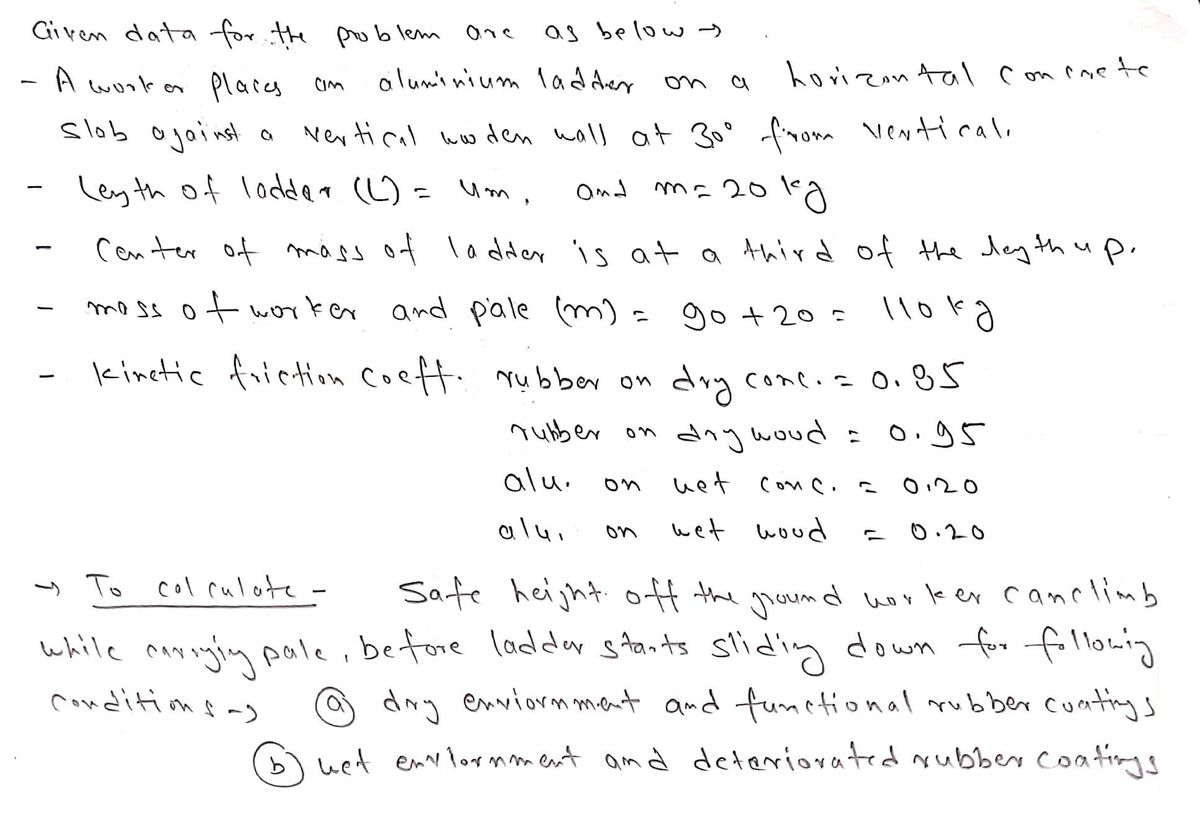 Given data for the problem are as below →
- A worker places an aluminium ladder on a horizontal concrete
slab against a vertical wooden wall at 30° from vertical.
- length of ladder (L) = 4m, and m = 20 kg
- Center of mass of ladder is at a third of the legth up.
- mass of worker and pale (m) = 90 + 20 = 110 kg
- kinetic friction coeff. rubber on dry conc. = 0.85
rubber on dry wood = 0.95
alu. on wet conc. = 0.20
alu. on wet wood = 0.20
→ To calculate - Safe height off the ground worker can climb
while carrying pale, before ladder starts sliding down for following
conditions → (a) dry enviornment and functional rubber coatings
(b) wet enviornment and deteriorated rubber coatings